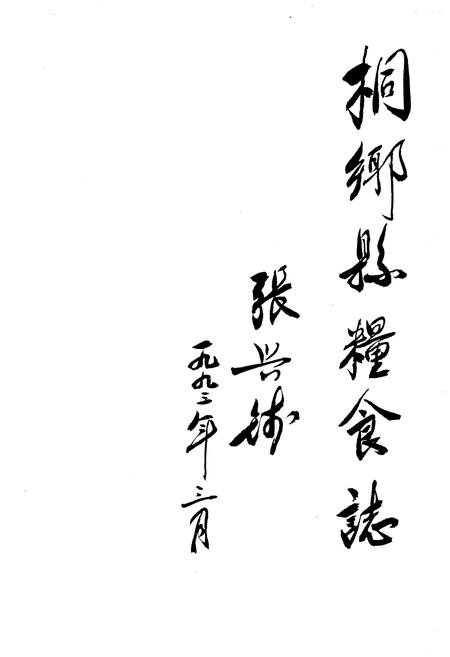 桐鄉縣糧食誌
張兴
一九九三年三月